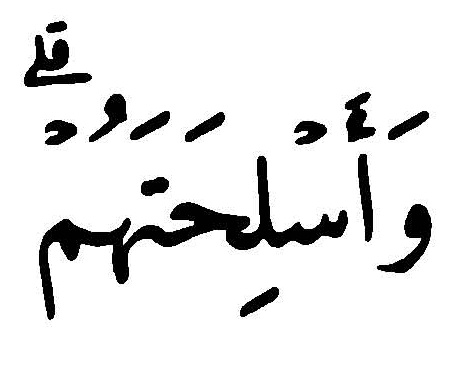 وَأَسْلِحَتَهُمْ ۗ